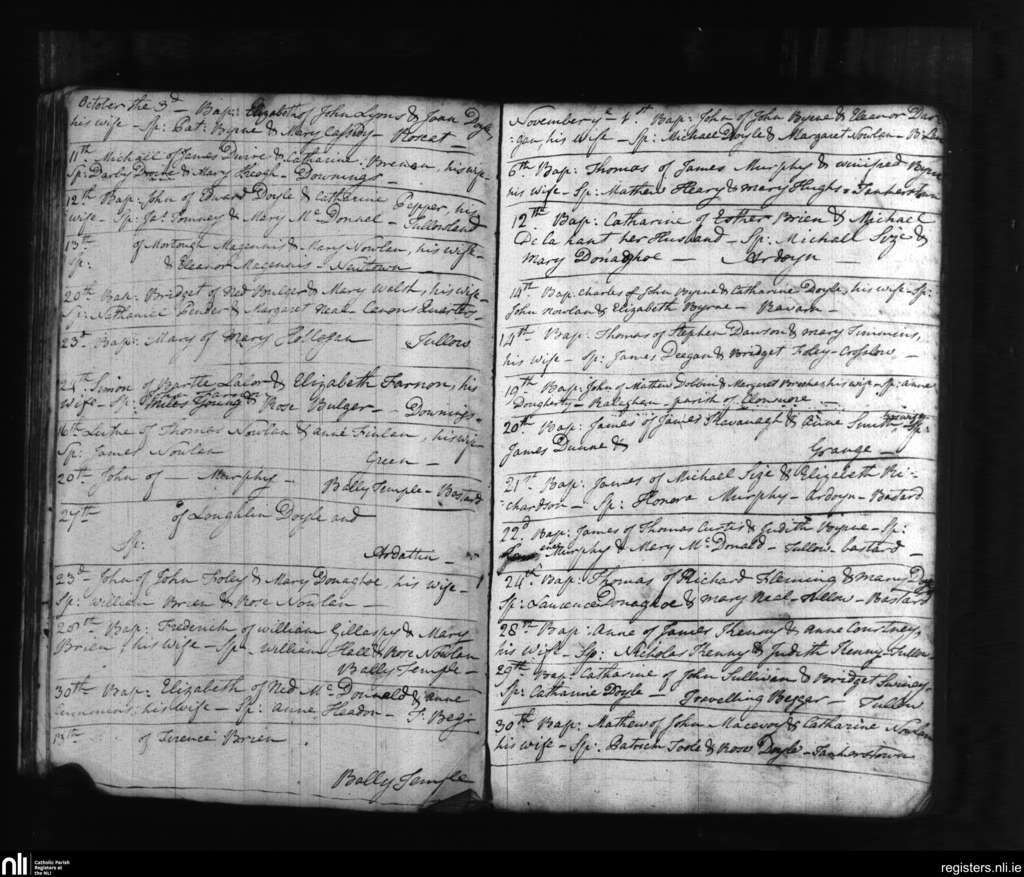 October the 3d - Bap: Elizabeth of John Lyons & Joan Doyle
his wife - Sp: Pat: Byrne & Mary Cassidy -
11th Michael of James & Catharine Brenan, his wife
Sp: Darby & Mary - Downings -
12th Bap: John of Edward Doyle & Catherine Pepper, his
wife - Sp: Jas. & Mary McDonnel - Tullowland
13th of Mortough Magennis & Mary Nowlan, his wife -
Sp: & Eleanor Magennis - Newtown
20th Bap: Bridget of Ned Bulger & Mary Welsh, his wife -
Sp: Nathaniel Pender & Margaret Neal - Canons Quarter -
23d Bap: Mary of Mary Tullow
24th Simon of Bartle Lalor & Elizabeth Farnon, his
wife - Sp: & Rose Bulger - Downings -
16th of Thomas Nowlan & Anne Finlan, his wife -
Sp: James Nowlan Green -
20th John of Murphy - Bally Temple - Bastard
27th of Loughlin Doyle and
Sp:
Ardattin -
23d John of John Foley & Mary Donaghoe his wife -
Sp: William Brien & Rose Nowlan -
28th Bap: Frederick of William Gillaspy & Mary
Brien, his wife - Sp. William Hall & Rose Nowlan
Bally Temple -
30th Bap: Elizabeth of Ned McDonnald & Anne
his wife - Sp: Anne Headon -
13th of Terence Brien
Bally Temple
November ye 1st Bap: John of John Byrne & Eleanor Dar
:gan, his wife - Sp: Michael Doyle & Margaret Nowlan -
6th Bap: Thomas of James Murphy & Winifred Byrne
his wife - Sp: Mathew & Mary Hughs -
12th Bap: Catharine of Esther Brien & Michael
De la hant her Husband - Sp: Michael &
Mary Donaghoe - Ardoyn -
14th Bap: Charles of John Byrne & Catharine Doyle, his wife - Sp:
John Nowlan & Elizabeth Byrne -
14th Bap: Thomas of Stephen Dawson & Mary Timmins,
his wife - Sp: James Deegan & Bridget Foley - Croslow -
19th Bap: John of Mathew & Margaret his wife - Sp: Anne
Dougherty - parish of Clonmore -
20th Bap: James of James Kavanagh & Anne Smith, Sp:
James Dunne & Grange -
21st Bap: James of Michael & Elizabeth Ri
:chardson - Sp: Honora Murphy - Ardoyn - Bastard
22d Bap: James of Thomas Curtis & Judith Byrne - Sp:
Murphy & Mary McDonald - Tullow - bastard -
24th Bap: Thomas of Richard Fleming & Mary
Sp: Laurence Donaghoe & Mary Neal - Tullow - Bastard
28th Bap: Anne of James Kenny & Anne Courtney,
his wife - Sp: Nicholas Kenny & Judith Kenny - Tullow
29th Bap: Catharine of John Sullivan & Bridget
Sp: Catharine Doyle - Travelling Tullow
30th Bap: Mathew of John & Catharine Nowlan
his wife - Sp: Patrick Toole & Rose Doyle -
nli
Catholic Parish
Registers at
the NLI
registers.nli.ie